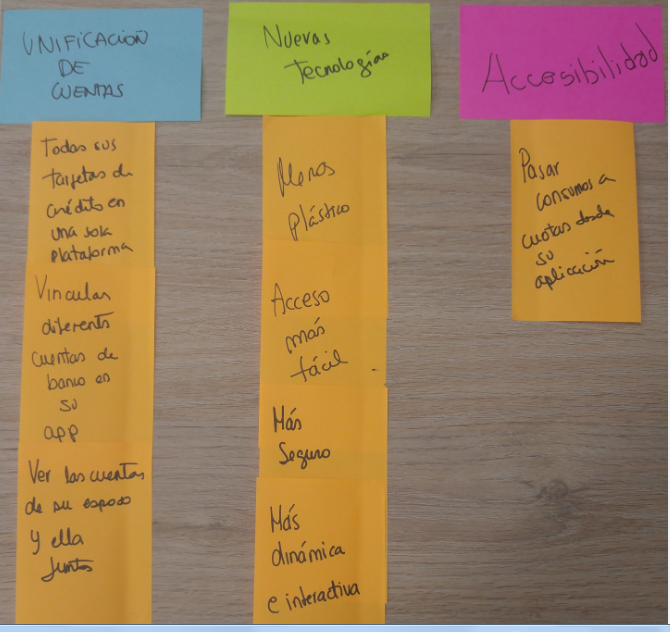 UNIFICACION
DE
CUENTAS
Todas sus
tarjetas de
crédito en
una sola
plataforma
Vincular
diferents
cuentas de
banco en
su
app
Ver las cuentas
de su esposo
y ella
juntos
Nuevas
Tecnologías
Menos
plástico
Acceso
más
fácil
Más
Seguro
Más
dinámica
e interactiva
Accesibilidad
Pasar
consumos a
cuotas desde
su
aplicación